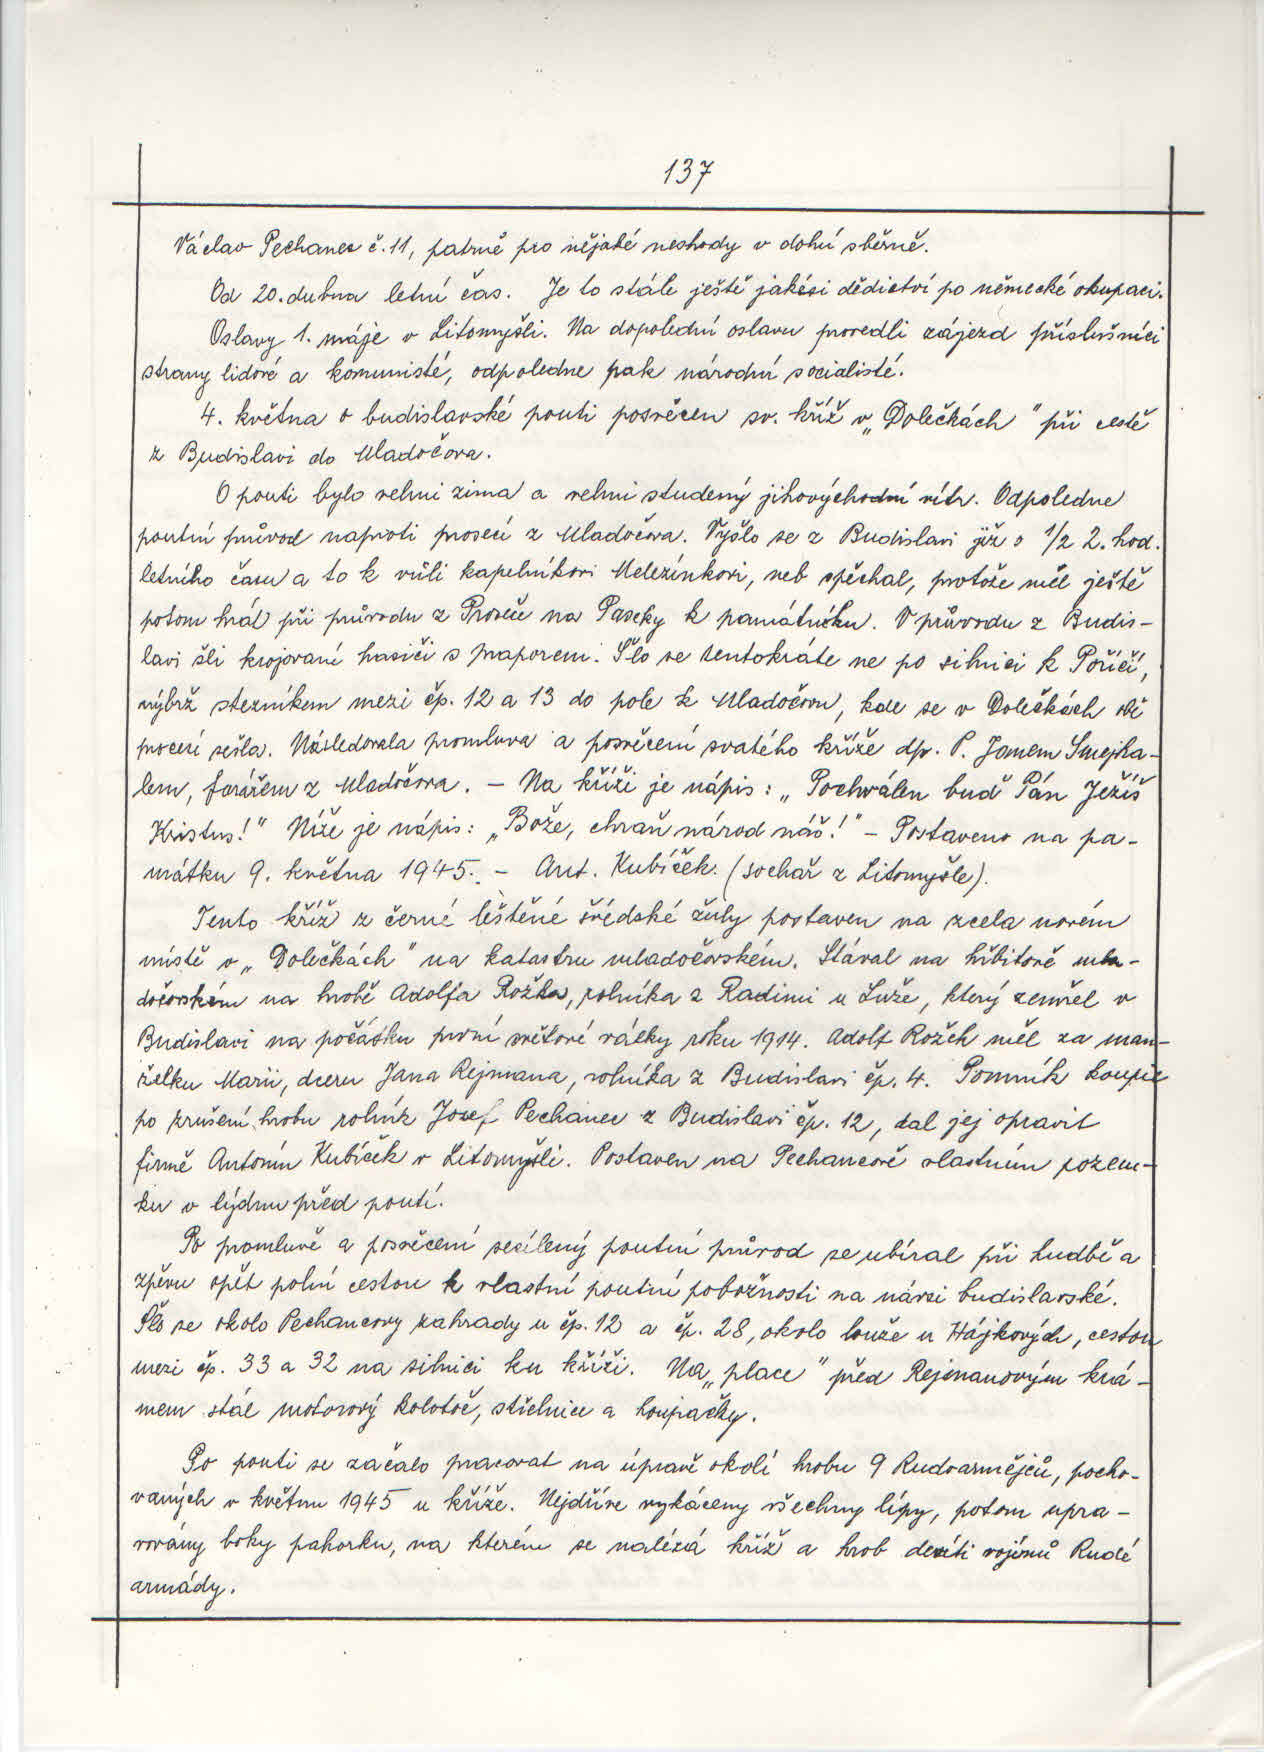 137
Václav Pechanec č. 11, patrně pro nějaké neshody v dohú sběrně.
Od 20. dubna letní čas. Je to stále ještě jakési dědictví po německé okupaci.
Oslavy 1. máje v Litomyšli. Na dopolední oslavu provedli zájezd příslušníci
strany lidové a komunisté, odpoledne pak národní socialisté.
4. května o budislavské pouti posvěcen sv. kříž v „Dolečkách" při cestě
z Budislavi do Mladočova.
O pouti bylo velmi zima a velmi studený jihovýchodní vítr. Odpoledne
poutní průvod naproti procesí z Mladočova. Vyšlo se z Budislavi již o 1/2 2. hod.
letního času a to k vůli kapelníkovi Melezínkovi, neb spěchal, protože měl ještě
potom hrát při průvodu z Proseče na Paseky k památníku. V průvodu z Budis-
lavi šli krojovaní hasiči s praporem. Šlo se tentokráte ne po silnici k Poříčí,
nýbrž stezníkem mezi čp. 12 a 13 do pole k Mladočovu, kde se v Dolečkách obě
procesí sešla. Následovala promluva a posvěcení svatého kříže dp. P. Janem Smejka-
lem, farářem z Mladočova. – Na kříži je nápis: „Pochválen buď Pán Ježíš
Kristus!" Níže je nápis: „Bože, chraň národ náš!" – Postaveno na pa-
mátku 9. května 1945. – Ant. Kubíček. (sochař z Litomyšle).
Tento kříž z černé leštěné švédské žuly postaven na zcela novém
místě v „Dolečkách" na katastru mladočovském. Stával na hřbitově mla-
dočovském na hrobě Adolfa Rožka, rolníka z Radimi u Luže, který zemřel v
Budislavi na počátku první světové války roku 1914. Adolf Rožek měl za man-
želku Marii, dceru Jana Rejmana, rolníka z Budislavi čp. 4. Pomník koupil
po zrušení hrobu rolník Josef Pechanec z Budislavi čp. 12, dal jej opravit
firmě Antonín Kubíček v Litomyšli. Postaven na Pechancově vlastním pozem-
ku v týdnu před poutí.
Po promluvě a posvěcení sesílený poutní průvod se ubíral při hudbě a
zpěvu opět polní cestou k vlastní poutní pobožnosti na návsi budislavské.
Šlo se okolo Pechancovy zahrady u čp. 12 a čp. 28, okolo louže u Hájkových, cestou
mezi čp. 33 a 32 na silnici ku kříži. Na „place" před Rejmanovým krá-
mem stál motorový kolotoč, střelnice a houpačky.
Po pouti se začalo pracovat na úpravě okolí hrobu 9 Rudoarmějců, pocho-
vaných v květnu 1945 u kříže. Nejdříve vykáceny všechny lípy, potom upra-
vovány boky pahorku, na kterém se nalézá kříž a hrob devíti vojínů Rudé
armády.